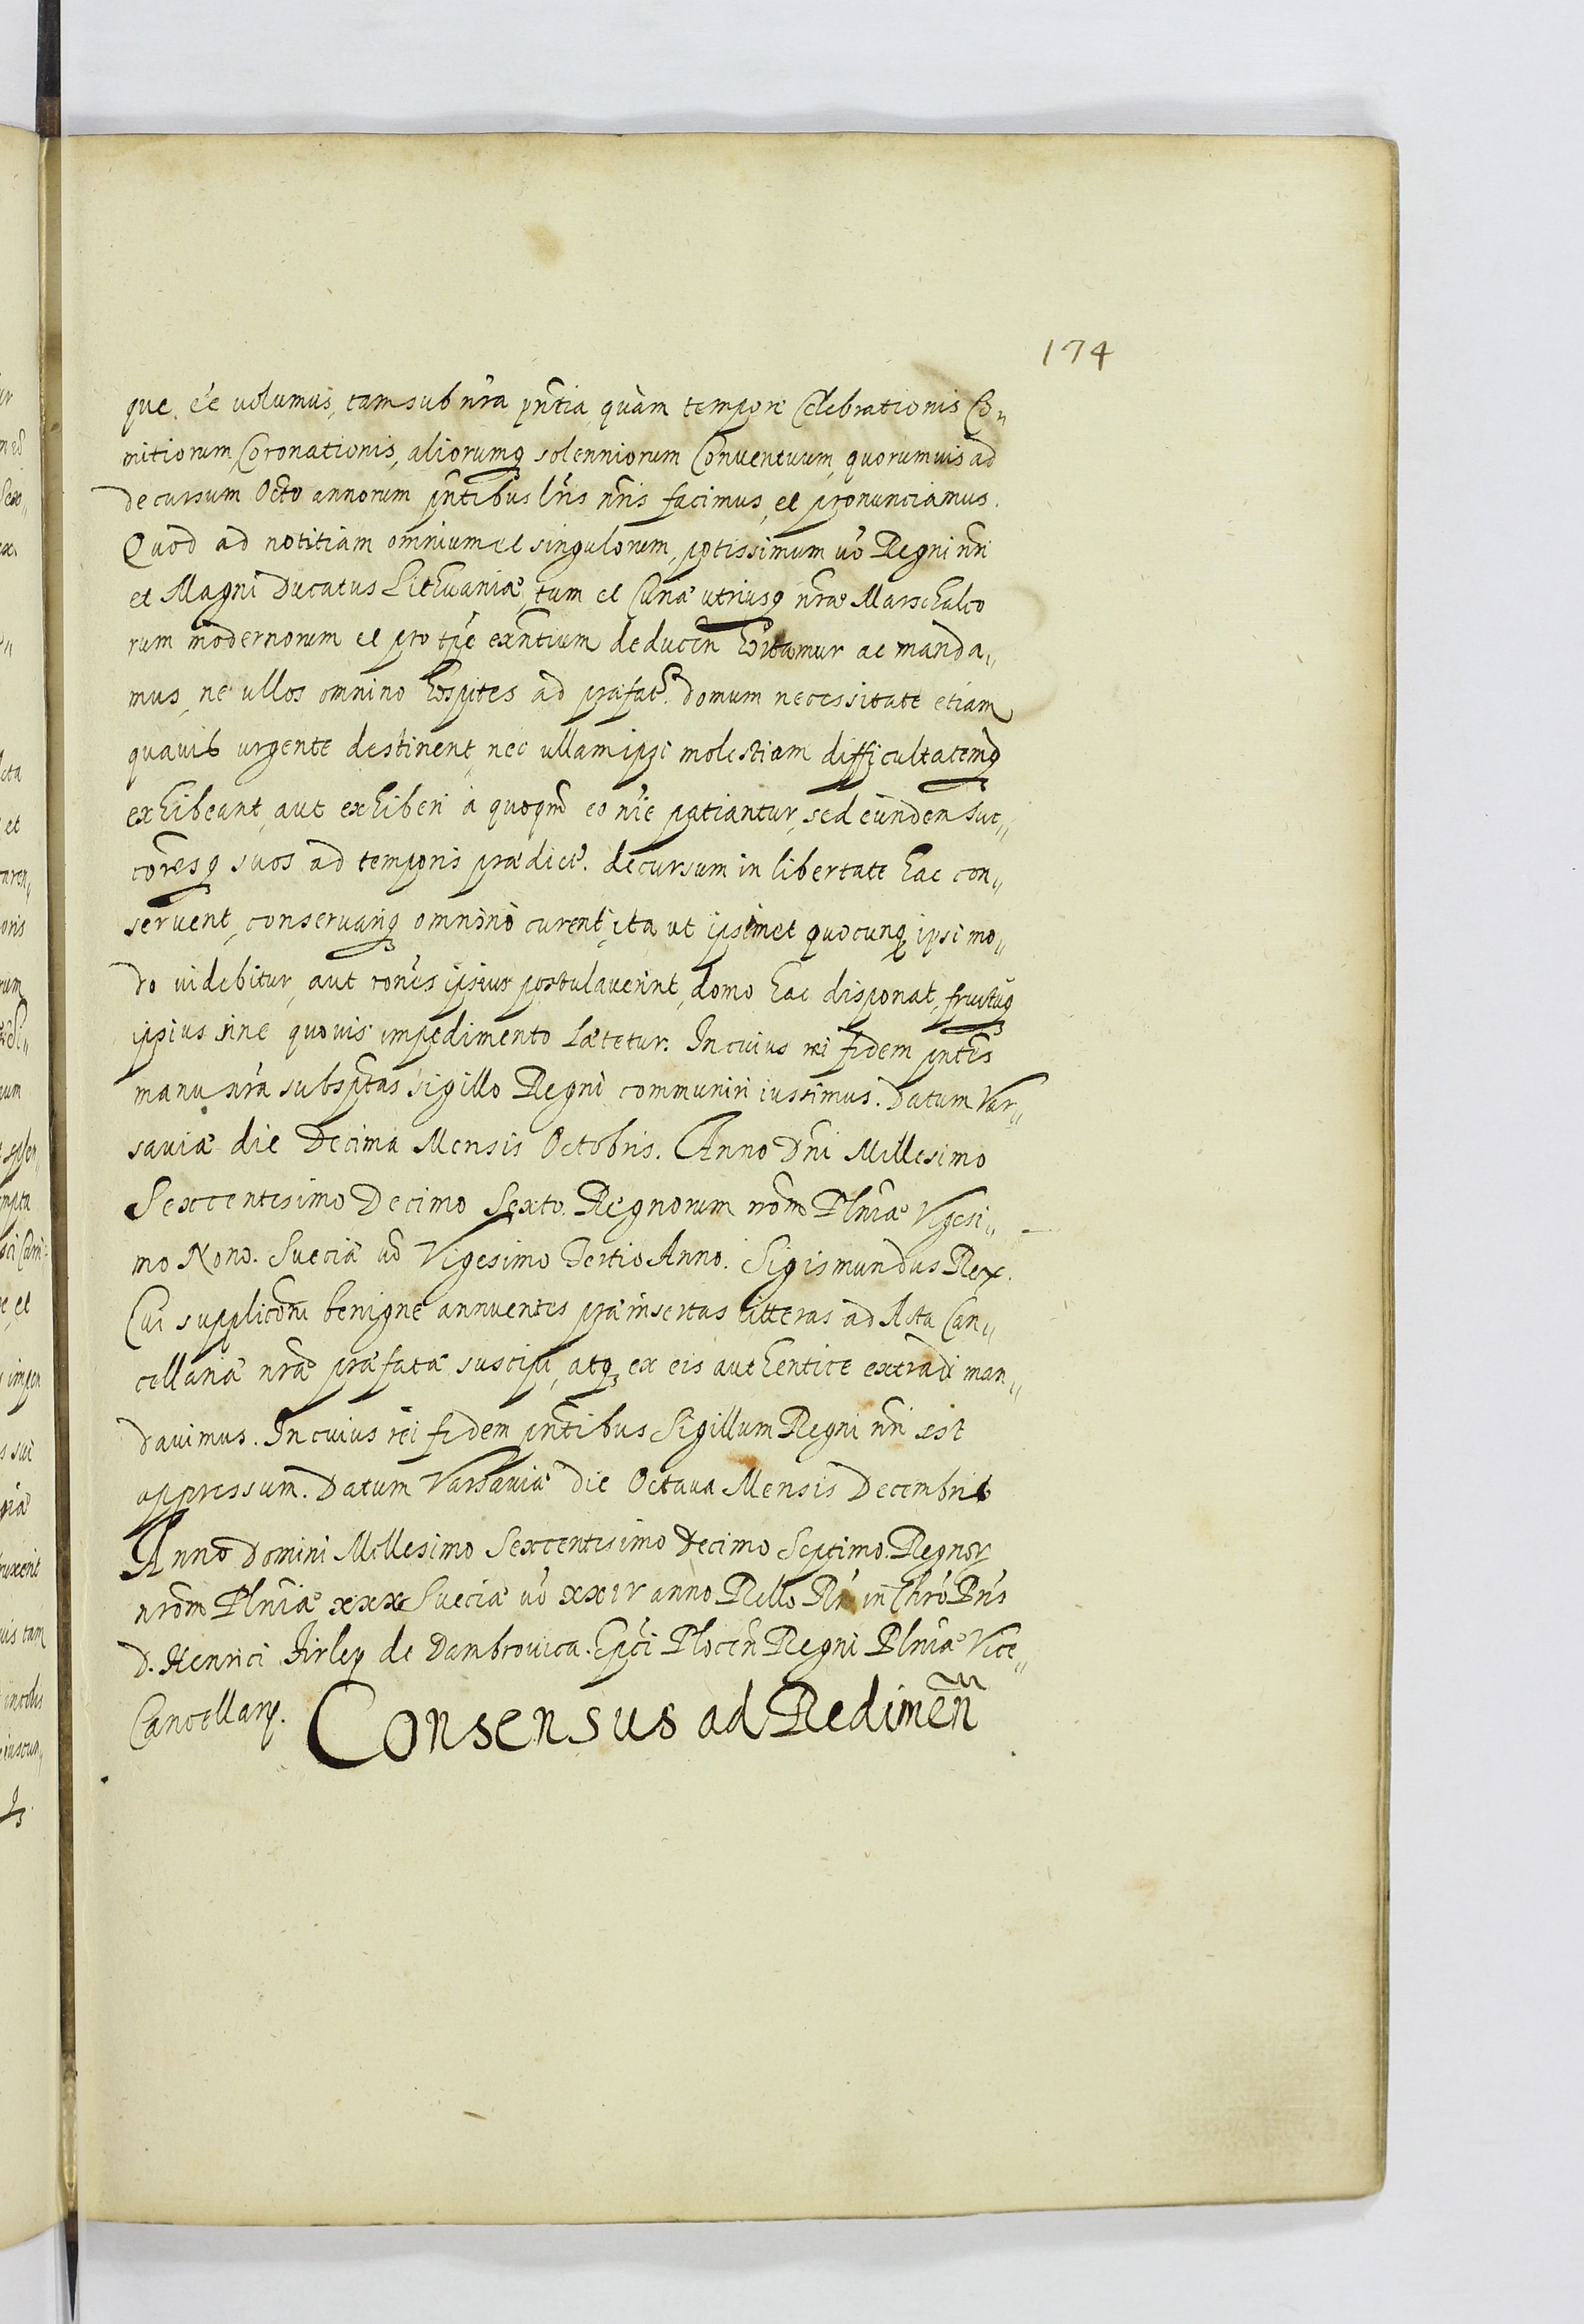 174
que, ee volumus, tam sub nra pntia, quàm tempore Celebrationis Co„
mitiorum Coronationis, aliorumq solenniorum Conventuum, quorumvis ad
decursum Octo annorum pntibus lris nris facimus, et pronunciamus.
Quod ad notitiam omnium et singulorum, potissimum vo Regni nri
et Magni Ducatus Lithvaniæ, tum et Curiæ utriusq nræ Marschalco
rum modernorum et pro tpe exntium deducen hortamur ac manda„
mus, ne ullos omnino hospites ad præfat. domum necessitate etiam
quavis urgente destinent, nec ullam ipsi molestiam difficultatemq
exhibeant, aut exhiberi à quoqm eo nie patiantur, sed eundem suc„
coresq suos ad temporis prædict. decursum in libertate hac con„
servent, conservariq omnino curent, ita ut ipsemet quocunq ipsi mo„
do videbitur, aut rones ipsius postulaverint, domo hac disponat, fructuq
ipsius sine quovis impedimento lætetur. In cuius rei fidem pntes
manu nra subsptas sigillo Regni communiri iussimus. Datum Var„
saviæ die Decima Mensis Octobris. Anno Dni Millesimo
Sexcentesimo Decimo Sexto. Regnorum nrom Plniæ Vigesi„
mo Nono. Sueciæ vo Vigesimo Tertio Anno. Sigismundus Rex.
Cui supplicõni benigne annuentes præinsertas litteras ad Acta Can„
cellariæ nræ præfatæ suscipi, atq ex eis authentice extradi man„
davimus. In cuius rei fidem pntibus Sigillum Regni nri est
appressum. Datum Varsaviæ die Octava Mensis Decembris
Anno Domini Millesimo Sexcentesimo Decimo Septimo. Regnor
nrom Plniæ xxx Sueciæ vo xxiv anno Rello Rr in Chro Pris
D. Henrici Firley de Dambrovica. Epci Plocen Regni Plniæ Vice„
Cancellarÿ. Consensus ad Redimen